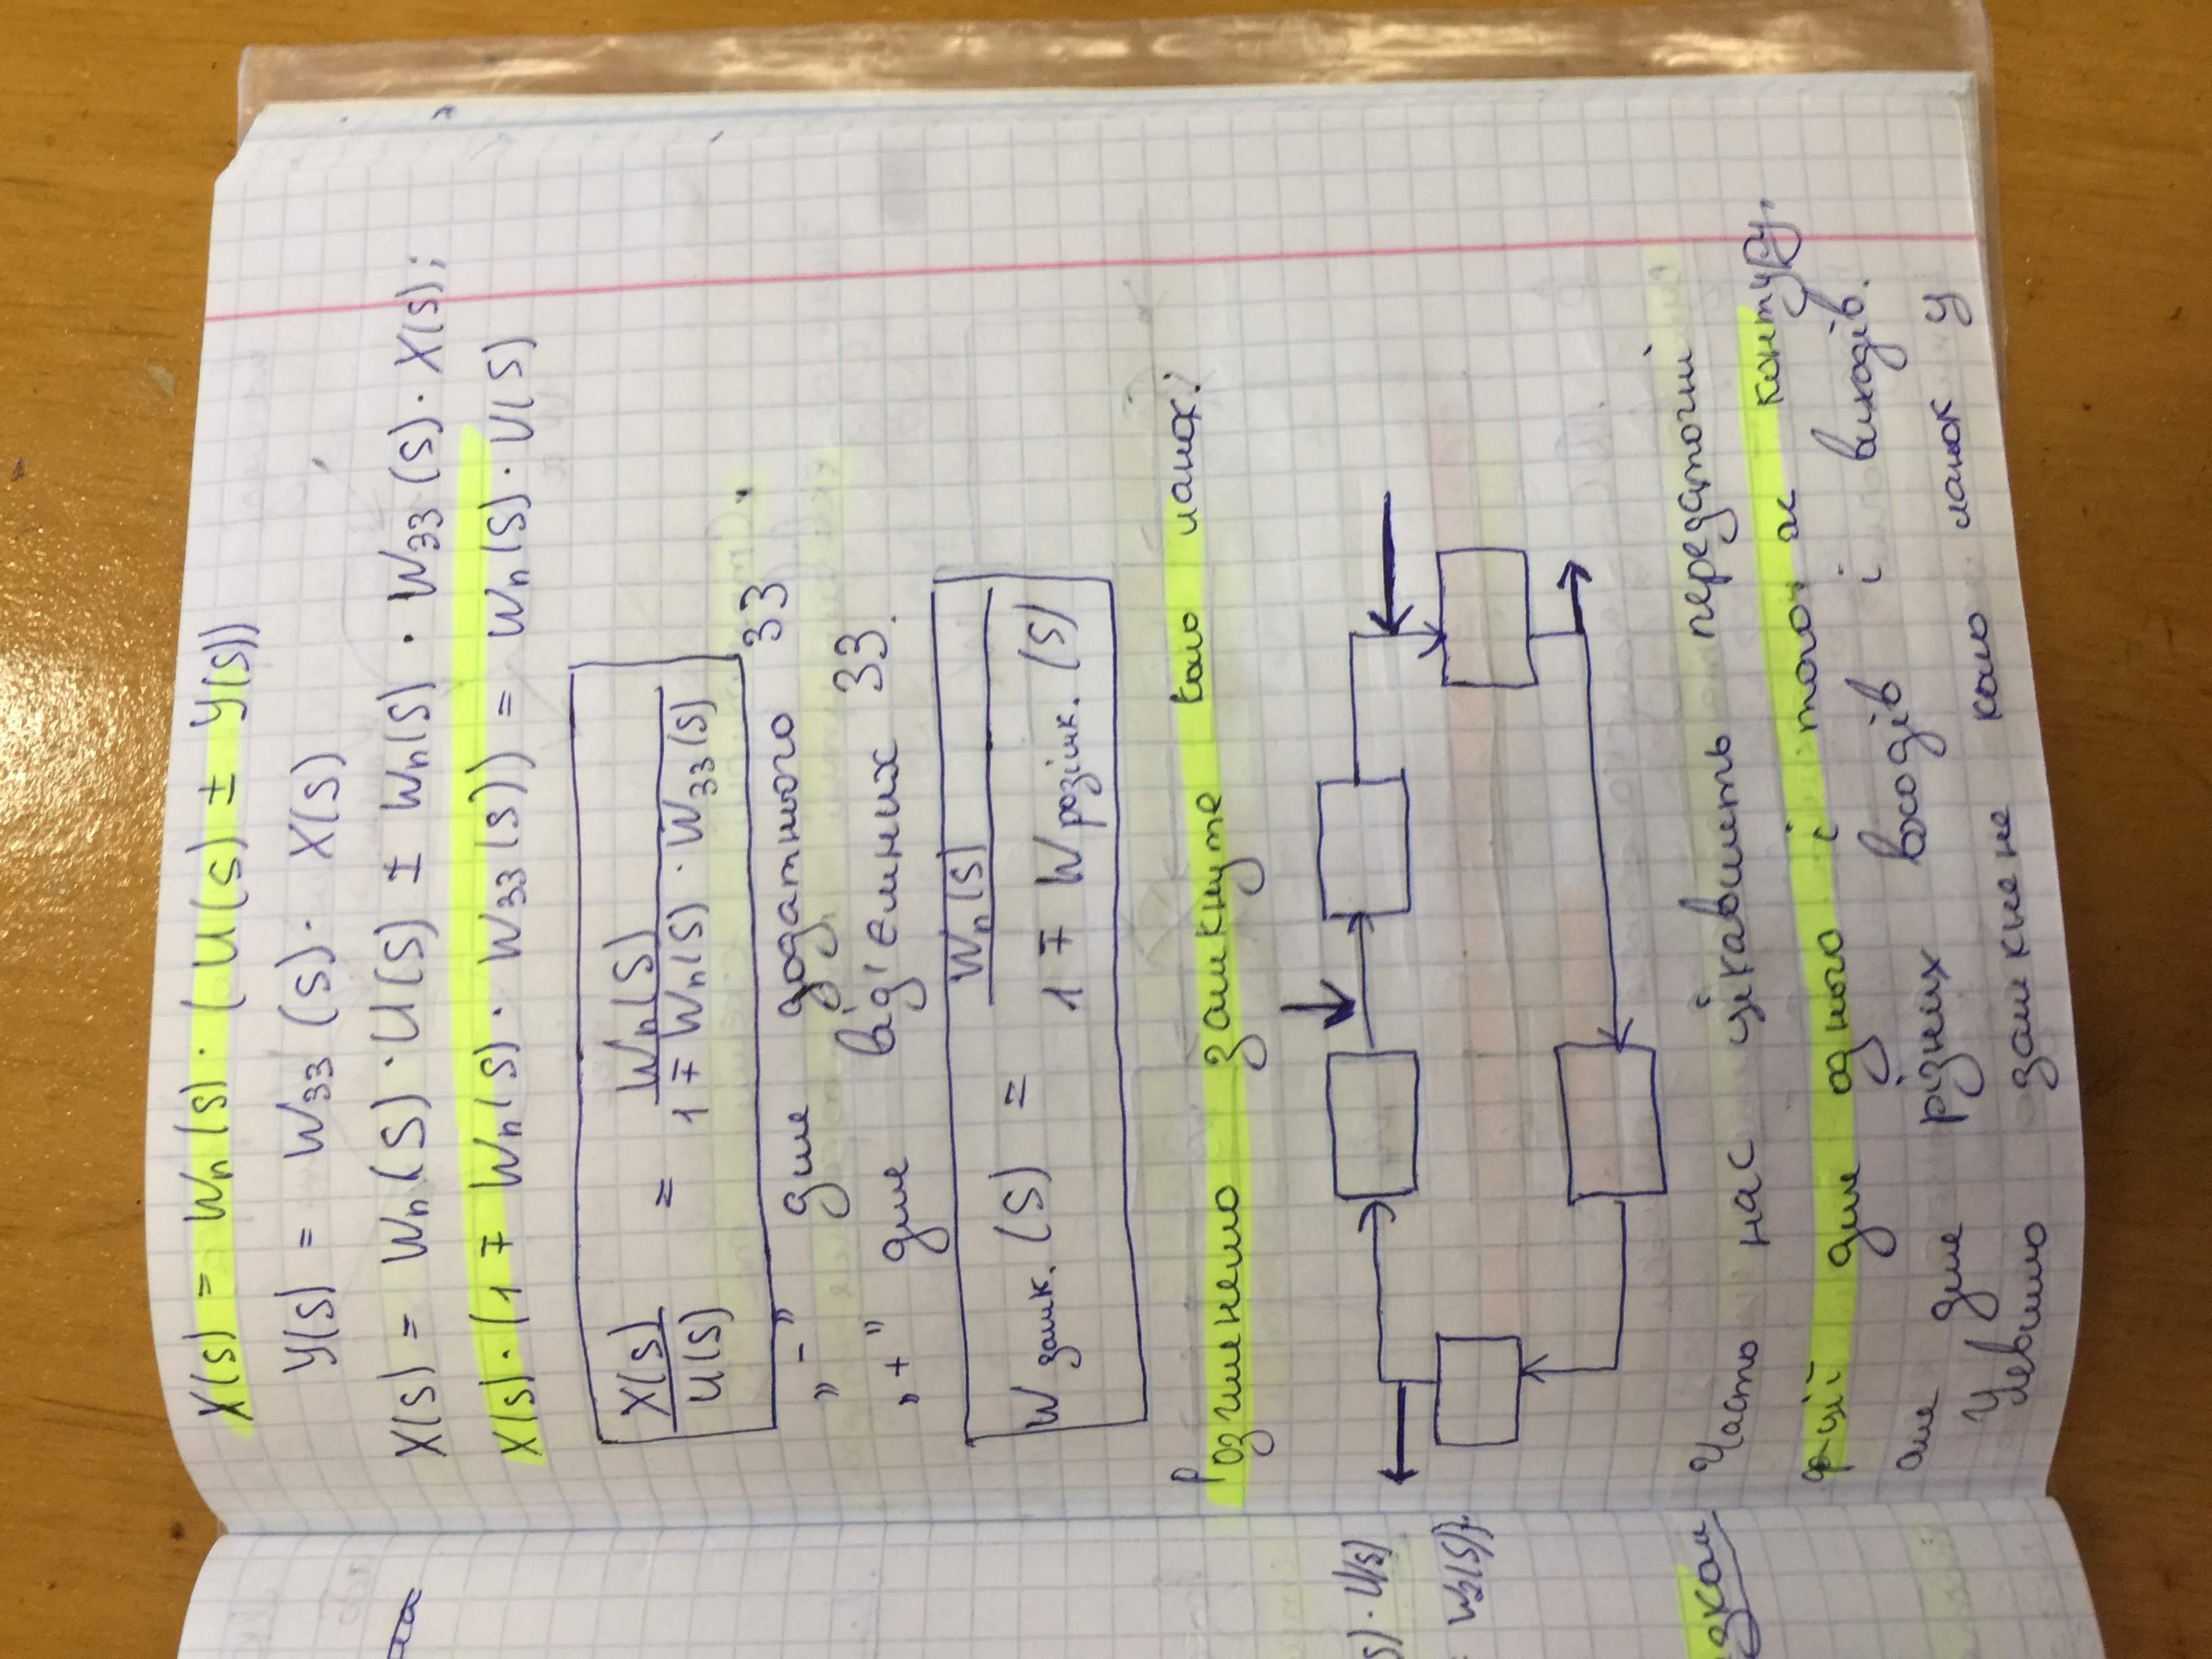 X(s) = Wп(s) · (U(s) ± Y(s))
Y(s) = Wзз(s) · X(s)
X(s) = Wп(s) · U(s) ± Wп(s) · Wзз(s) · X(s);
X(s) · (1 ∓ Wп(s) · Wзз(s)) = Wп(s) · U(s)
X(s)/U(s) = Wп(s)/(1 ∓ Wп(s) · Wзз(s))
„-” для додатнього ЗЗ
„+” для від'ємних ЗЗ.
Wзамк.(s) = Wп(s)/(1 ∓ Wрозімк.(s))
Розглянемо замкнуте коло ланок:
s) · U(s)
W2(s)}
Часто нас цікавлять передаточні
ф-ції для одного і того ж контуру,
але для різних входів і виходів.
Уявимо замкнене коло ланок у